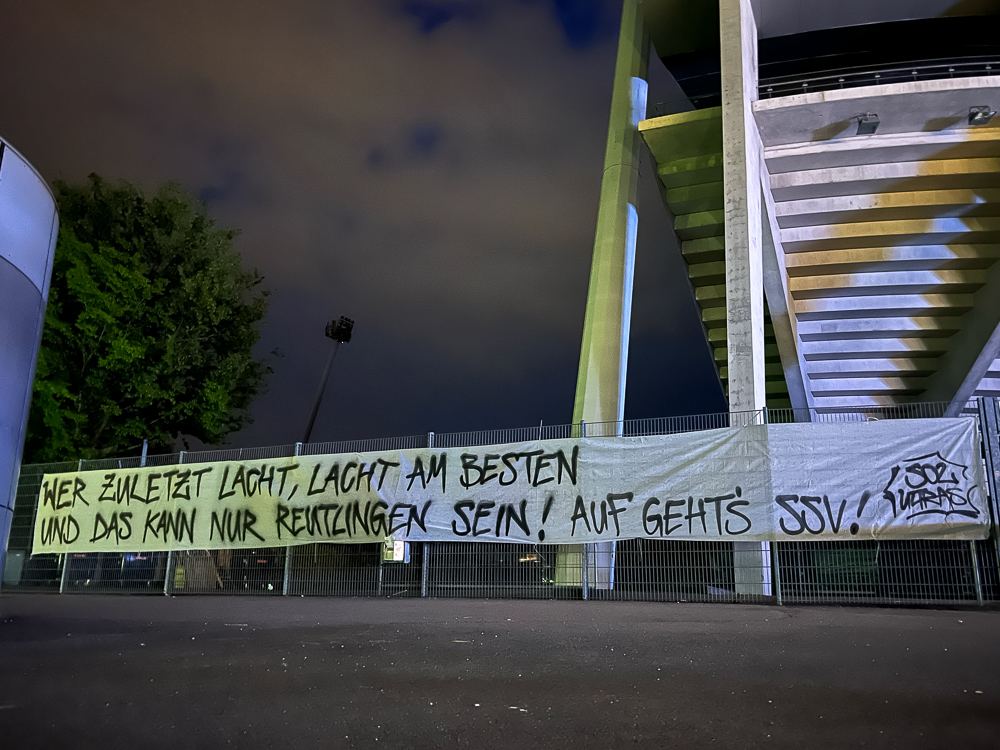 WER ZULETZT LACHT, LACHT AM BESTEN
UND DAS KANN NUR REUTLINGEN SEIN! AUF GEHT'S SSV!
SOZ
ULTRAS